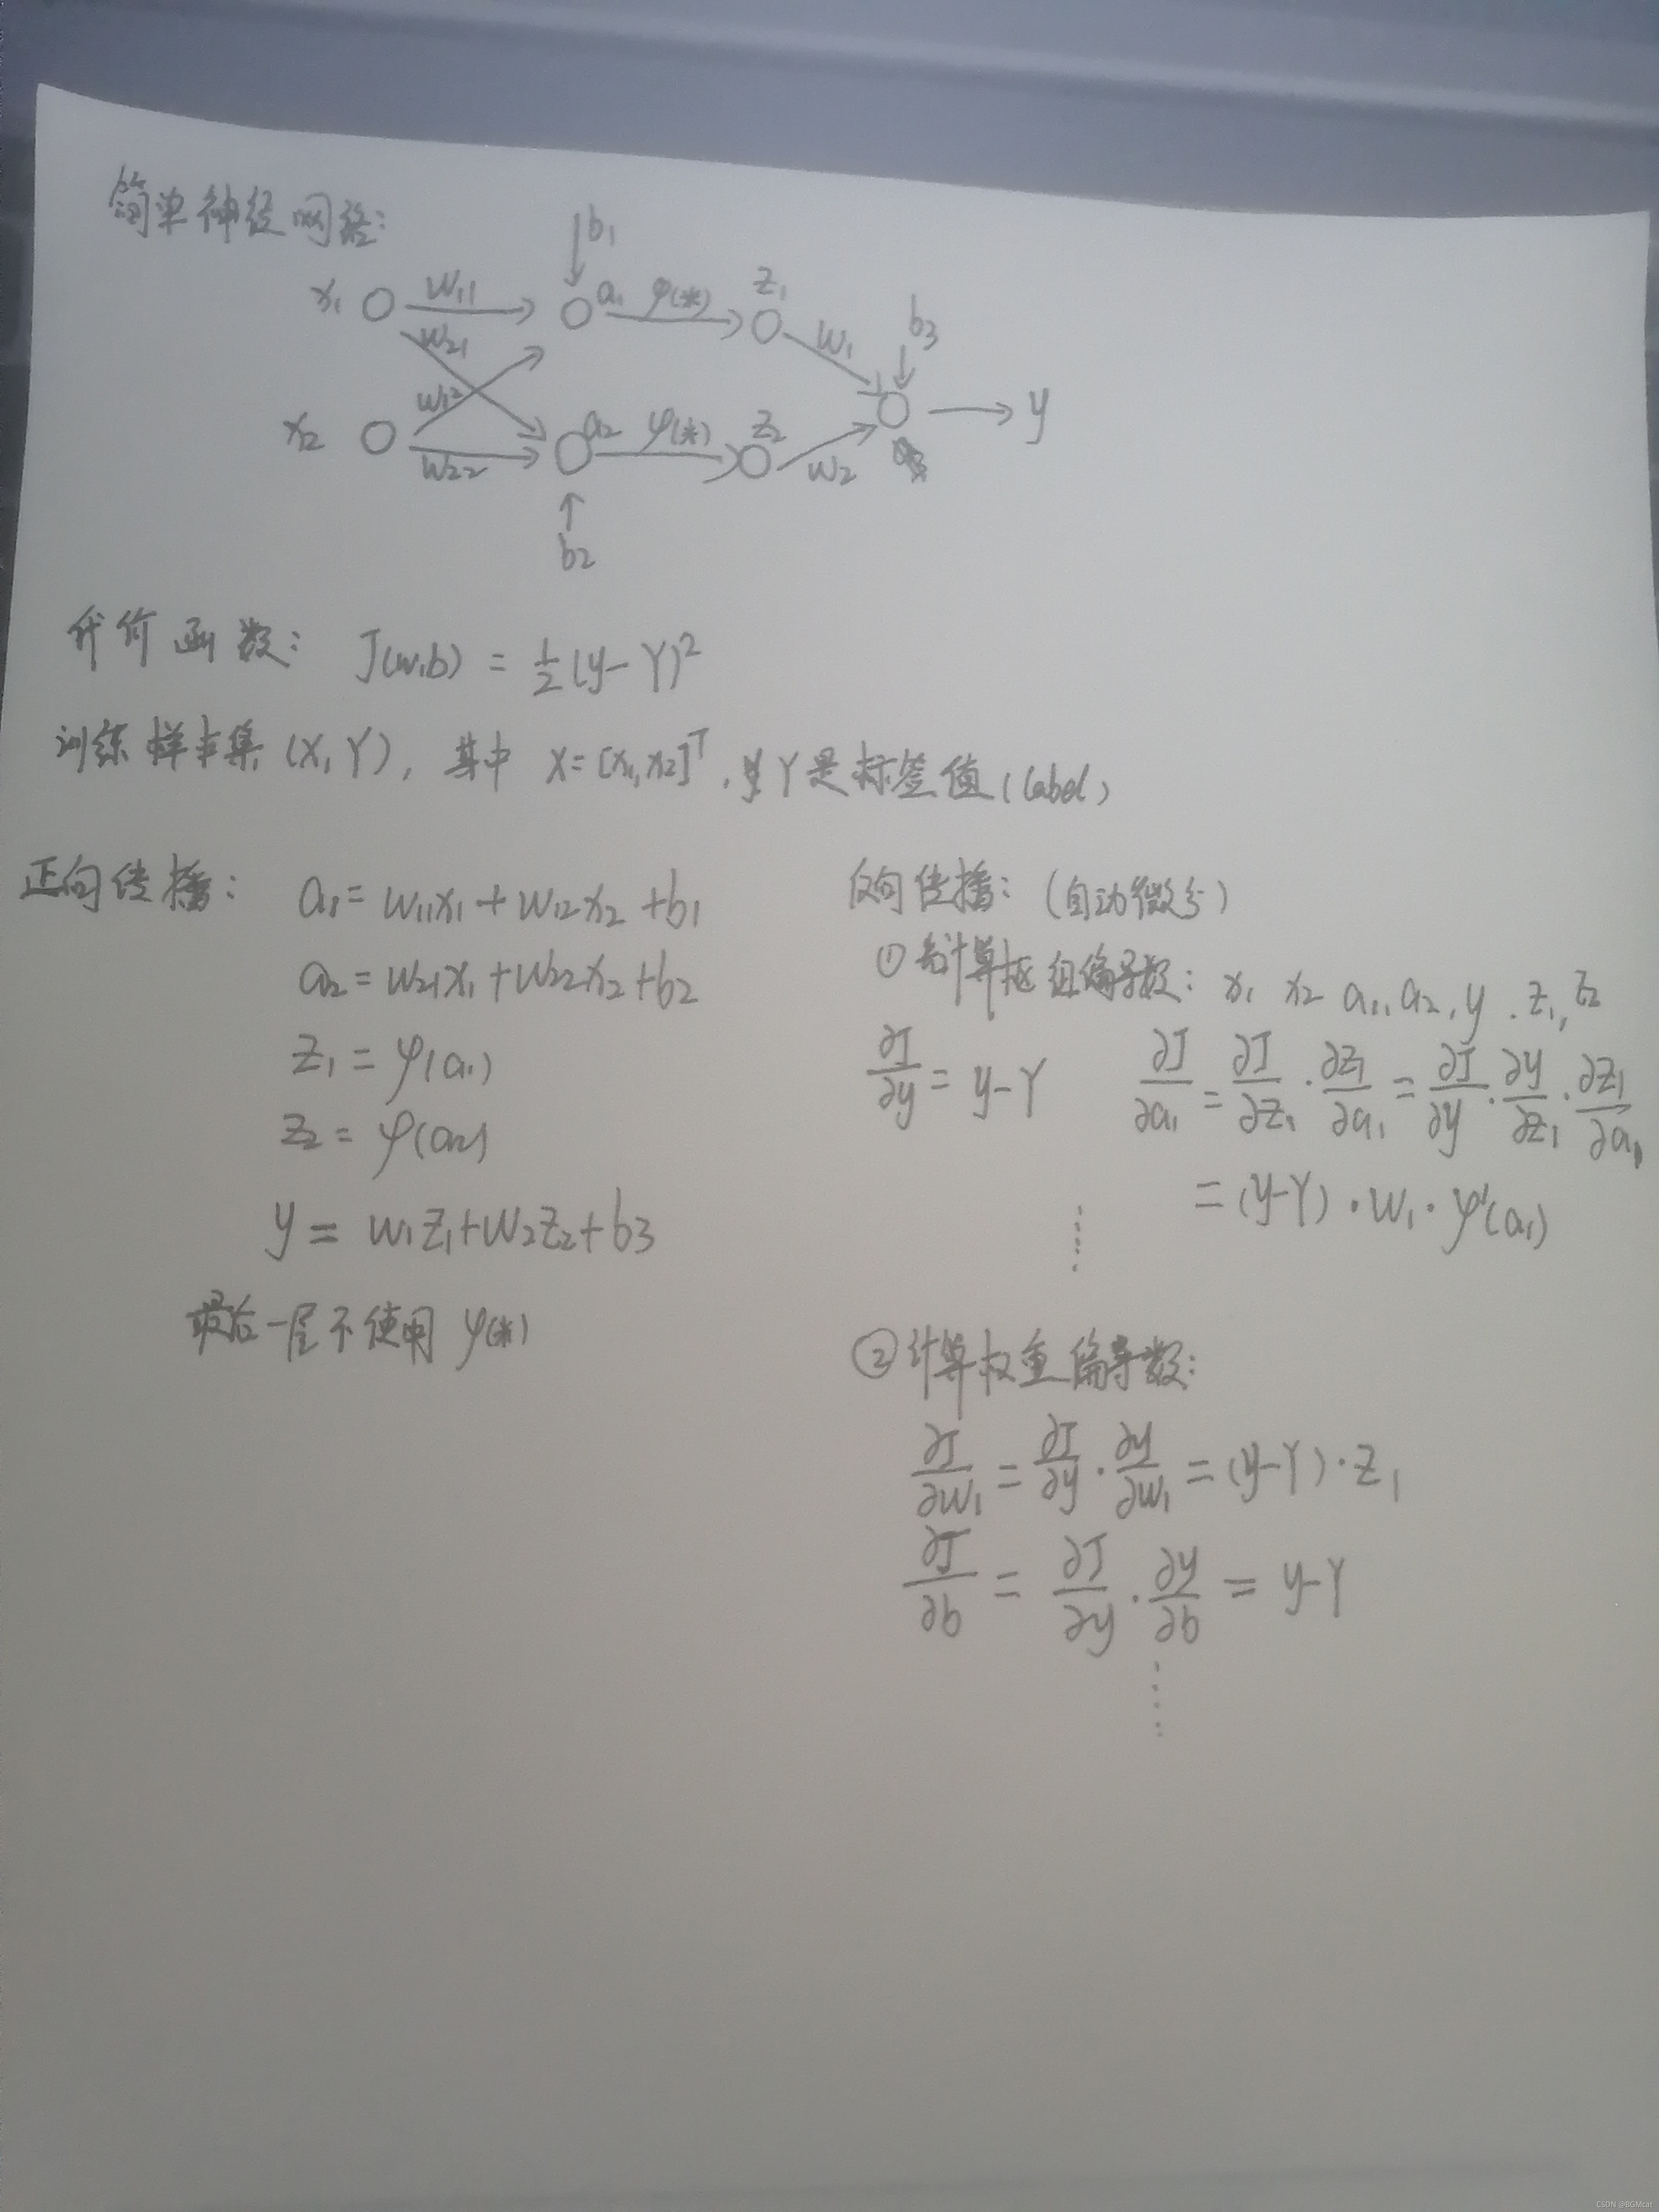 简单神经网络:
b₁
x₁ w₁₁ a₁ φ(*) z₁
w₂₁ w₁ b₃
w₁₂ y
x₂ w₂₂ a₂ φ(*) z₂ w₂
b₂
代价函数: J(w,b) = ½(y-Y)²
训练样本集 (X,Y), 其中 X=[x₁,x₂]ᵀ, Y是标签值(label)
正向传播:
a₁=w₁₁x₁+w₁₂x₂+b₁
a₂=w₂₁x₁+w₂₂x₂+b₂
z₁=φ(a₁)
z₂=φ(a₂)
y=w₁z₁+w₂z₂+b₃
最后一层不使用φ(*)
反向传播: (自动微分)
① 计算 组偏导数: x₁ x₂ a₁,a₂,y.z₁,z₂
∂J/∂y=y-Y ∂J/∂a₁=∂J/∂z₁·∂z₁/∂a₁=∂J/∂y·∂y/∂z₁·∂z₁/∂a₁
=(y-Y)·w₁·φ'(a₁)
② 计算权重偏导数:
∂J/∂w₁=∂J/∂y·∂y/∂w₁=(y-Y)·z₁
∂J/∂b=∂J/∂y·∂y/∂b=y-Y
CSDN @BGMcat